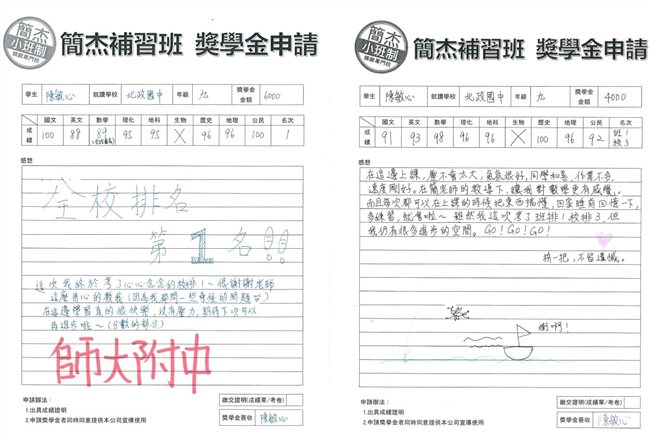 簡杰
小班制
簡杰補習班 獎學金申請
學生 陳敏心 就讀學校 北政國中 年級 九 獎學金金額 6000
國文 英文 數學 理化 地科 生物 歷史 地理 公民 名次
成績 100 88 89 95 95 X 96 96 100 1
感想
全校排名
第1名!!
這次我終於考了心心念念的校排1~很謝謝老師
這麼用心的教我(因為我都問一些奇怪的問題)
在這邊學習真的很快樂,沒有壓力,期待下次可以
再進步啦~(分數的部分)
師大附中
申請辦法:
1.出具成績證明
2.申請獎學金者同時同意提供本公司宣傳使用
繳交證明(成績單/考卷)
獎學金簽收 陳敏心
簡杰
小班制
簡杰補習班 獎學金申請
學生 陳敏心 就讀學校 北政國中 年級 九 獎學金金額 4000
國文 英文 數學 理化 地科 生物 歷史 地理 公民 名次
成績 91 93 98 96 96 X 100 96 92 班1 校3
感想
在這邊上課,壓不會太大,氣氛很好,同學和善,作業不多,
速度剛好。在簡老師的教導下,讓我對數學更有感覺。
而且每次都可以在上課的時候把東西搞懂,回家睡前回憶一下,
多練習,就會啦~ 雖然我這次考了班排1校排3,但
我仍有很多進步的空間。GO!GO!GO!
拚一把,不留遺憾。
衝啊!
申請辦法:
1.出具成績證明
2.申請獎學金者同時同意提供本公司宣傳使用
繳交證明(成績單/考卷)
獎學金簽收 陳敏心